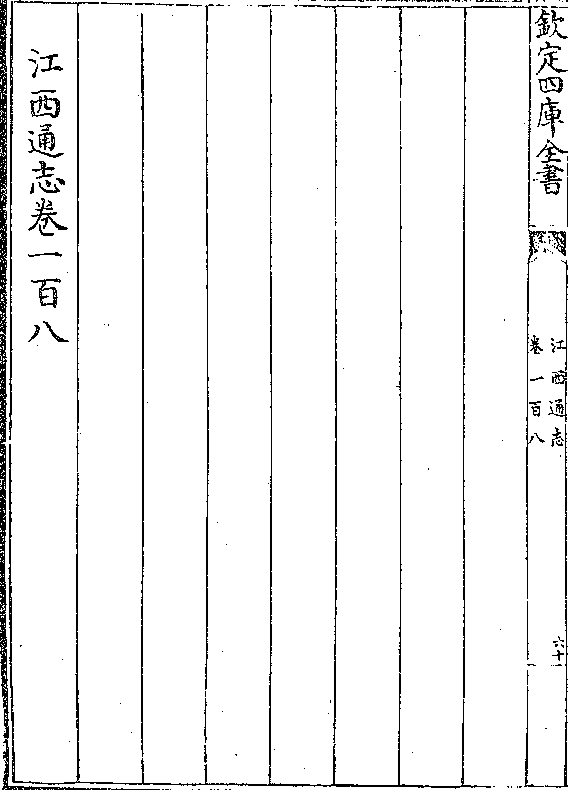 欽定四庫全書
江西通志
卷一百八
六十一
江西通志卷一百八